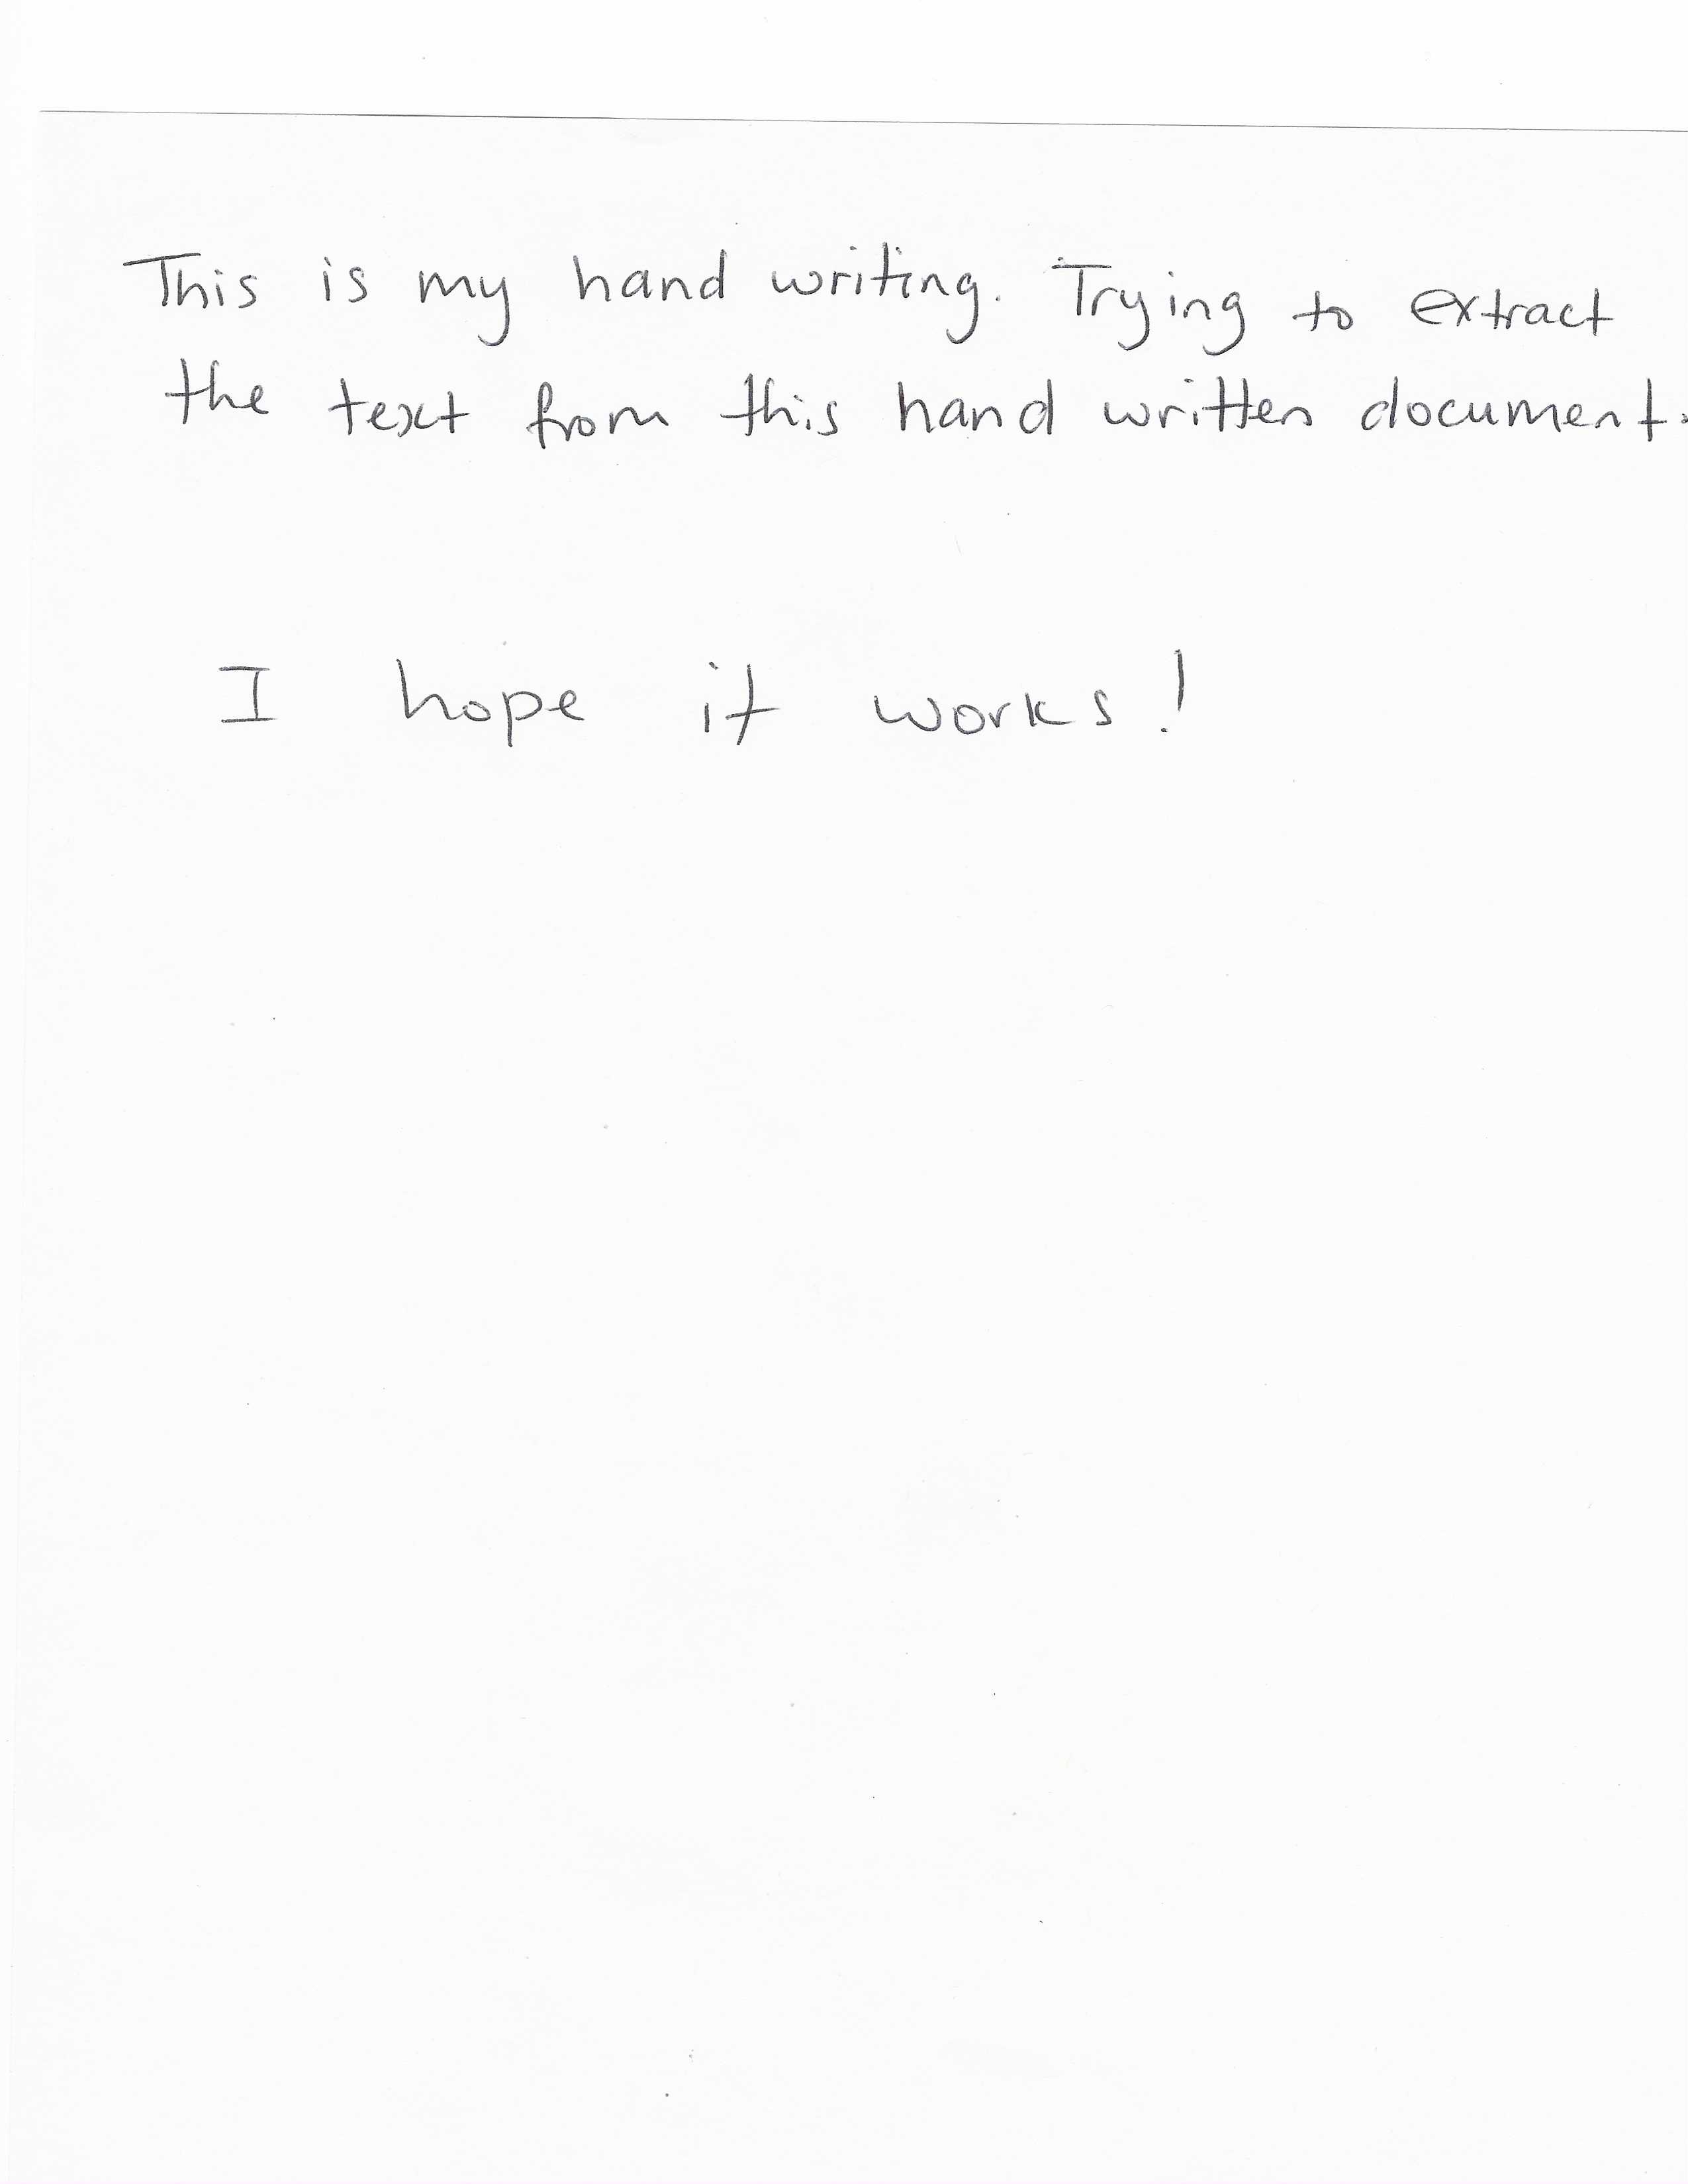 This is my hand writing. Trying to extract
the text from this hand written document.
I hope it works!